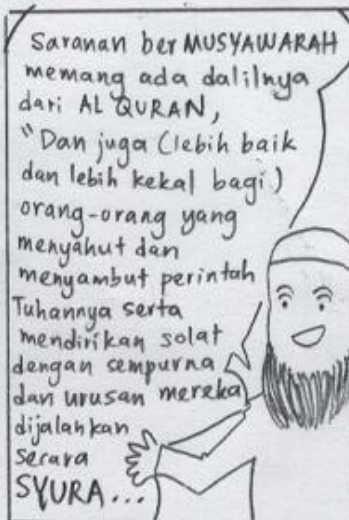 Saranan ber MUSYAWARAH
memang ada dalilnya
dari AL QURAN,
"Dan juga (lebih baik
dan lebih kekal bagi)
orang-orang yang
menyahut dan
menyambut perintah
Tuhannya serta
mendirikan solat
dengan sempurna
dan urusan mereka
dijalankan
secara
SYURA...